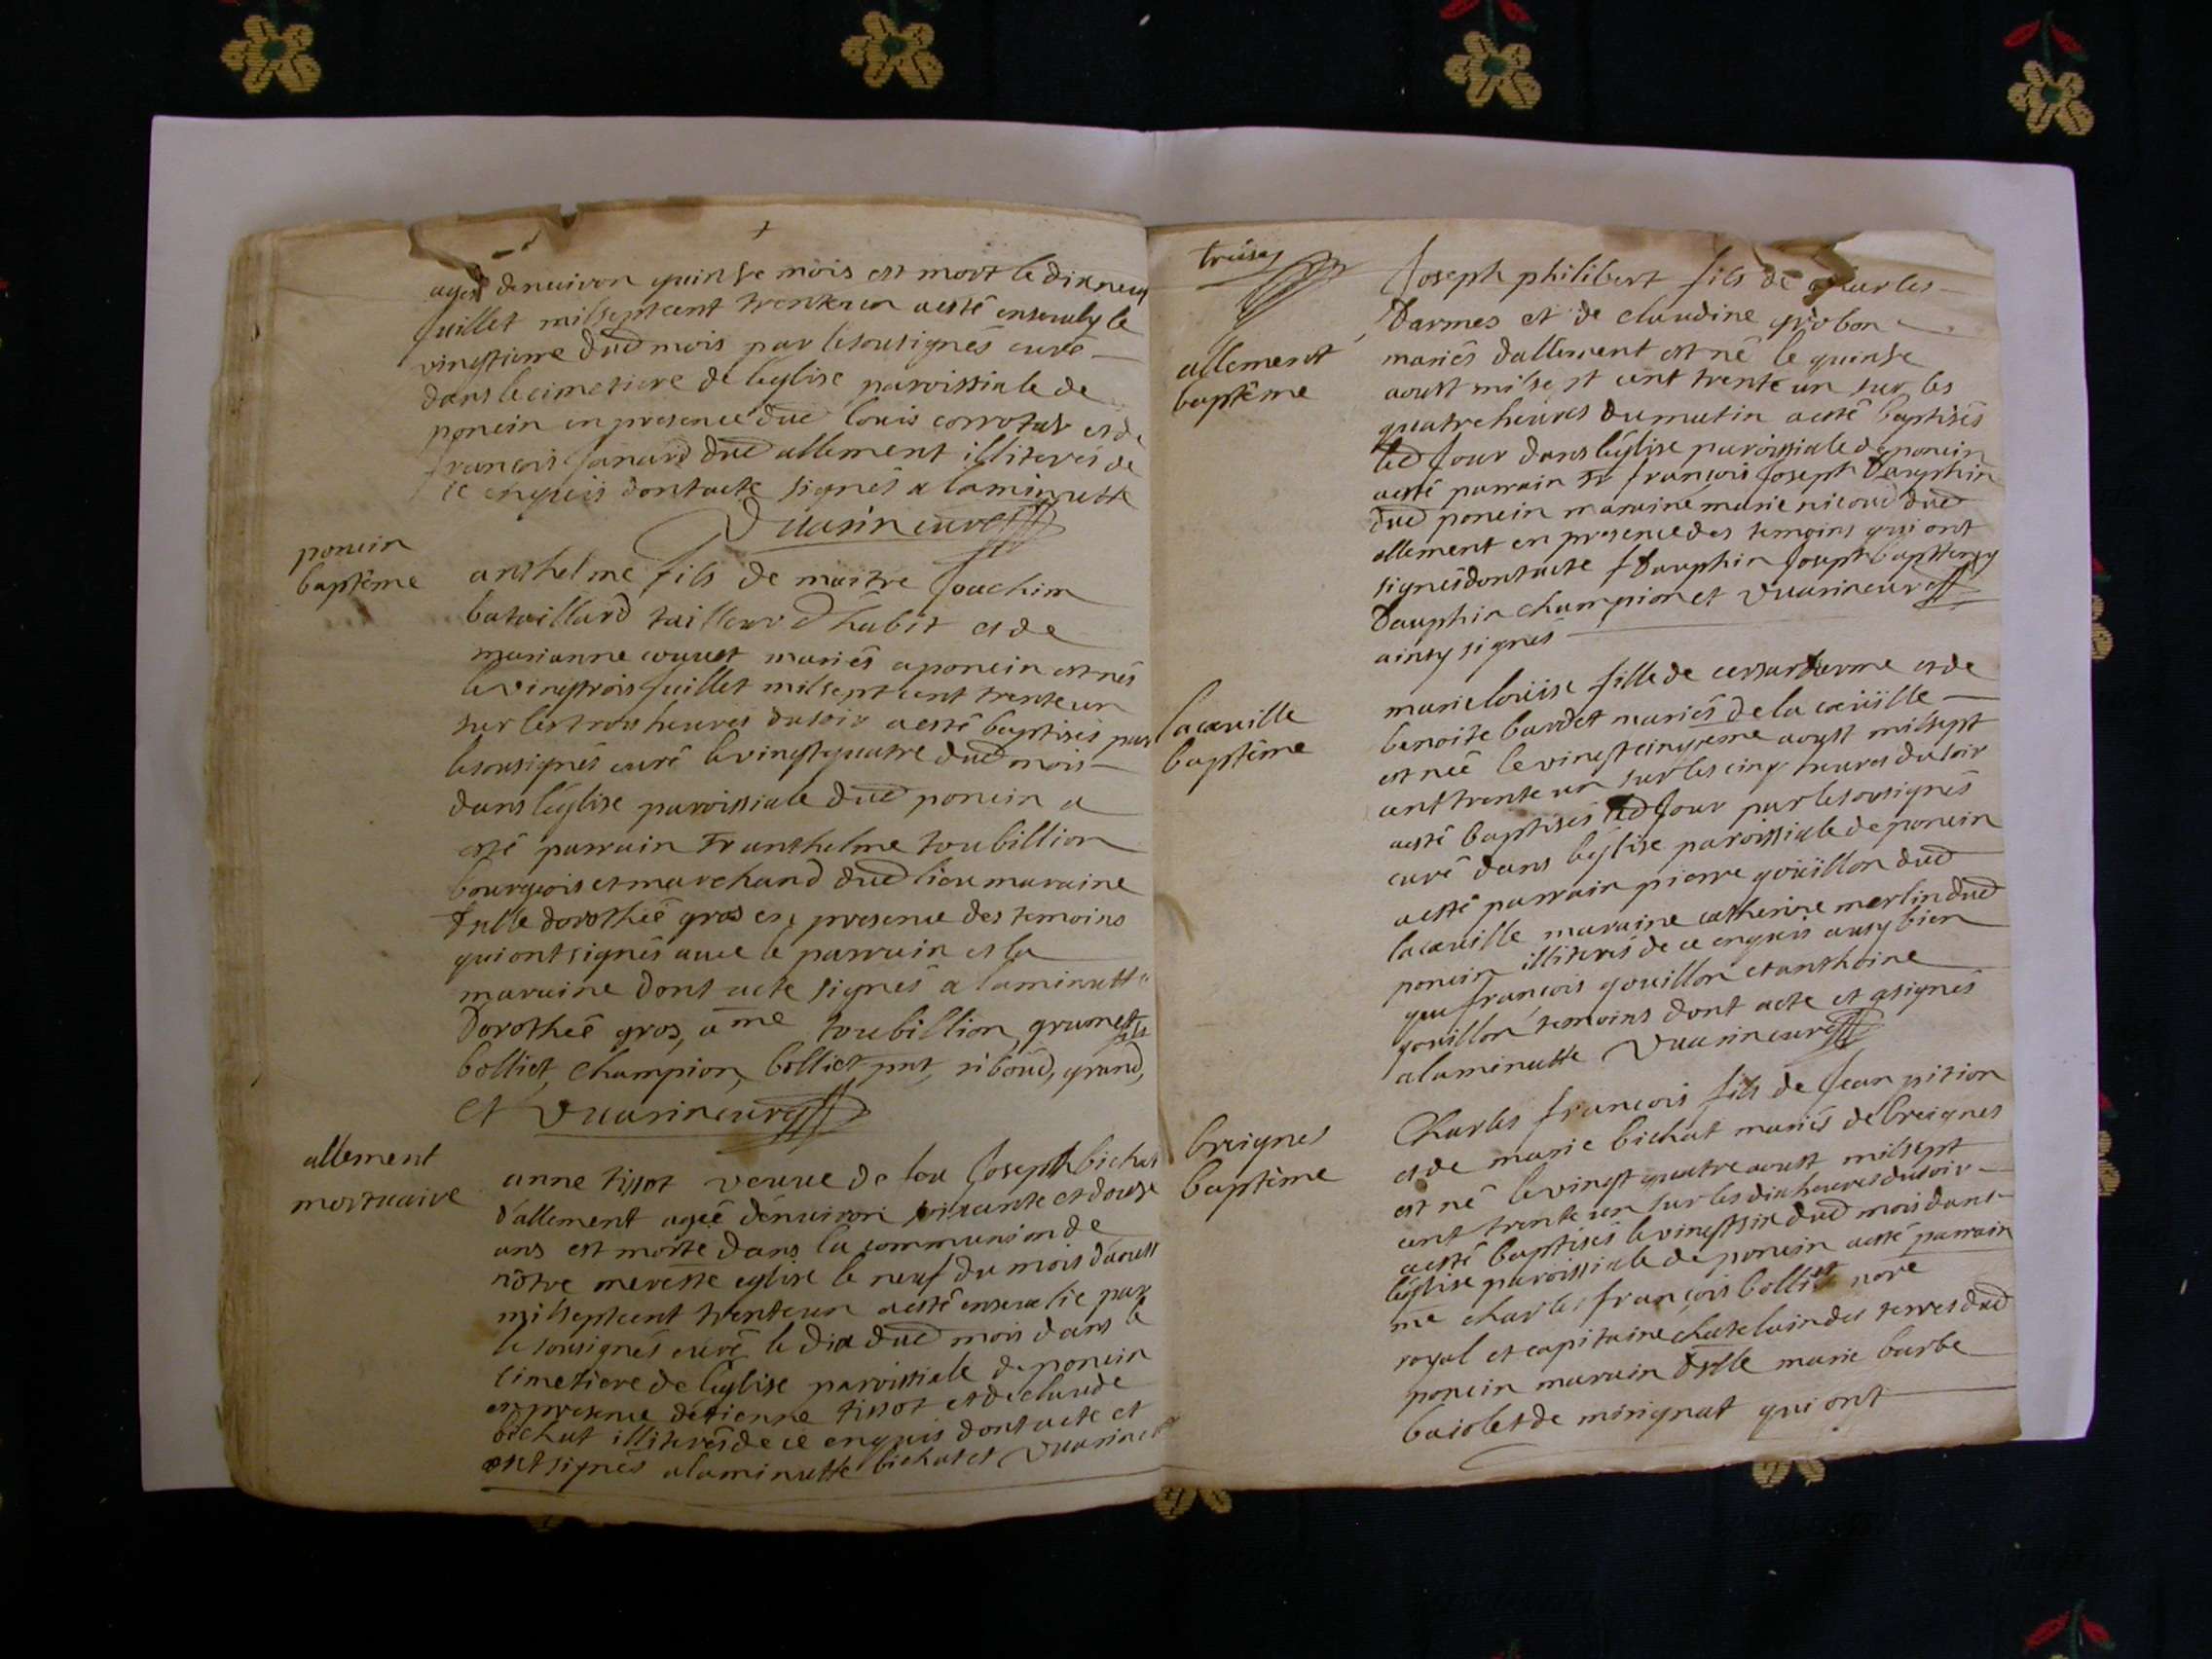 agés denuiron quinse mois est mort le dixneuf
Juillet milseptcent trenteun aesté enseuely le
vingtieme dud mois par lesousignés curé
dans lecimetiere de leglise paroissiale de
poncin en presence dud louis corrotar et de
francois Janard dud allement illiterés de
ce enquis dontacte signés alaminutte
Vuarin curé
poncin
baptême
anthelme fils de maitre Joachim
bataillard tailleur d'habit et de
marianne couuet mariés aponcin est nés
levingtrois Juillet milsept cent trenteun
sur lestrois heures dusoir aesté baptisés par
lesousignés curé levingtquatre dud mois
dans l'église paroissiale dud poncin a
esté parrain sr anthelme toubillion
bourgeois et marchand dud lieu maraine
dlle dorothée gros en presence des temoins
qui ont signés auec le parrain et la
maraine dont acte signés alaminutte
Dorotheé gros, ame toubillion, grumet
bolliet, champion, bolliet pnt, riboud, grand,
et Vuarin curé
allement
mortuaire
anne tissot veuue de feu Joseph bichat
d'allement ageé dénuiron soixante et douse
ans est morte dans la communion de
nôtre mere ste eglise le neuf du mois daoust
milseptcent trenteun aesté enseuelie par
le sousignés curé le dix dud mois dans le
cimetiere de leglise paroissiale de poncin
en presence détienne tissot et de claude
bichat illiterés de ce enquis dont acte et
ont signés alaminutte bichat et Vuarin curé
treise
allement
baptême
Joseph philibert fils de charles
Darmes et de claudine grobon
mariés dallement est né le quinse
aoust milsept cent trente un sur les
quatre heures dumatin aesté baptisés
led Jour dans léglise paroissiale de poncin
aesté parrain sr francois Joseph Dauphin
dud poncin maraine marie nicoud dud
allement en presence des temoins qui ont
signés dontacte f Dauphin Joseph
Dauphin championet Vuarin curé
ainsy signés
lacueille
baptême
marie loüise fille de cesar darme et de
benoite bardet mariés de la cueille
est neé le vingtcinqieme aoust milsept
cent trente un sur les cinq heures du soir
aesté baptisés led Jour par le sousignés
curé dans léglise paroissiale de poncin
aesté parrain pierre goüillon dud
lacueille maraine catherine merlin dud
poncin illiterés de ce enquis ausy bien
que francois gouillon et anthoine
gouillon temoins dont acte et asignés
alaminutte Vuarin curé
breignes
baptême
Charles francois fils de Jean pition
et de marie bichat mariés de breignes
est né levingt quatre aoust milsept
cent trente un sur les dix heures du soir
aesté baptisés levingtsix dud mois dans
léglise paroissiale de poncin aesté parrain
me charles françois bolliet nore
royal et capitaine chatelain des terres dud
poncin marain dlle marie barbe
baiolet de mérignat qui ont